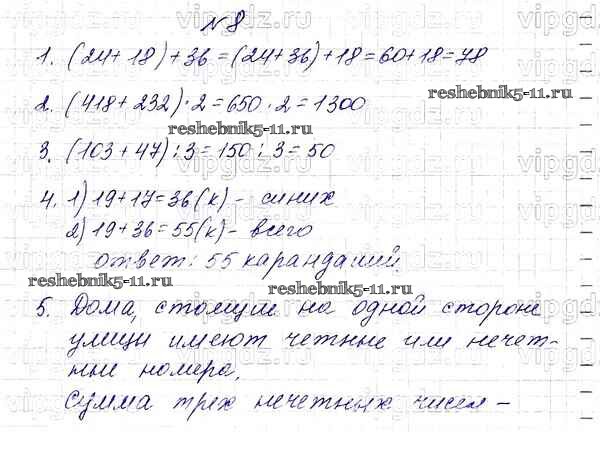 №8
1. (24+18)+36=(24+36)+18=60+18=78
2. (418+232)·2=650·2=1300
reshebnik5-11.ru
reshebnik5-11.ru
3. (103+47):3=150:3=50
4. 1) 19+17=36(к) - синих
2) 19+36=55(к) - всего
ответ: 55 карандашей.
reshebnik5-11.ru
reshebnik5-11.ru
5. Дома, стоящие на одной стороне
улицы имеют четные или нечет-
ные номера.
Сумма трех нечетных чисел -
vipgdz.ru